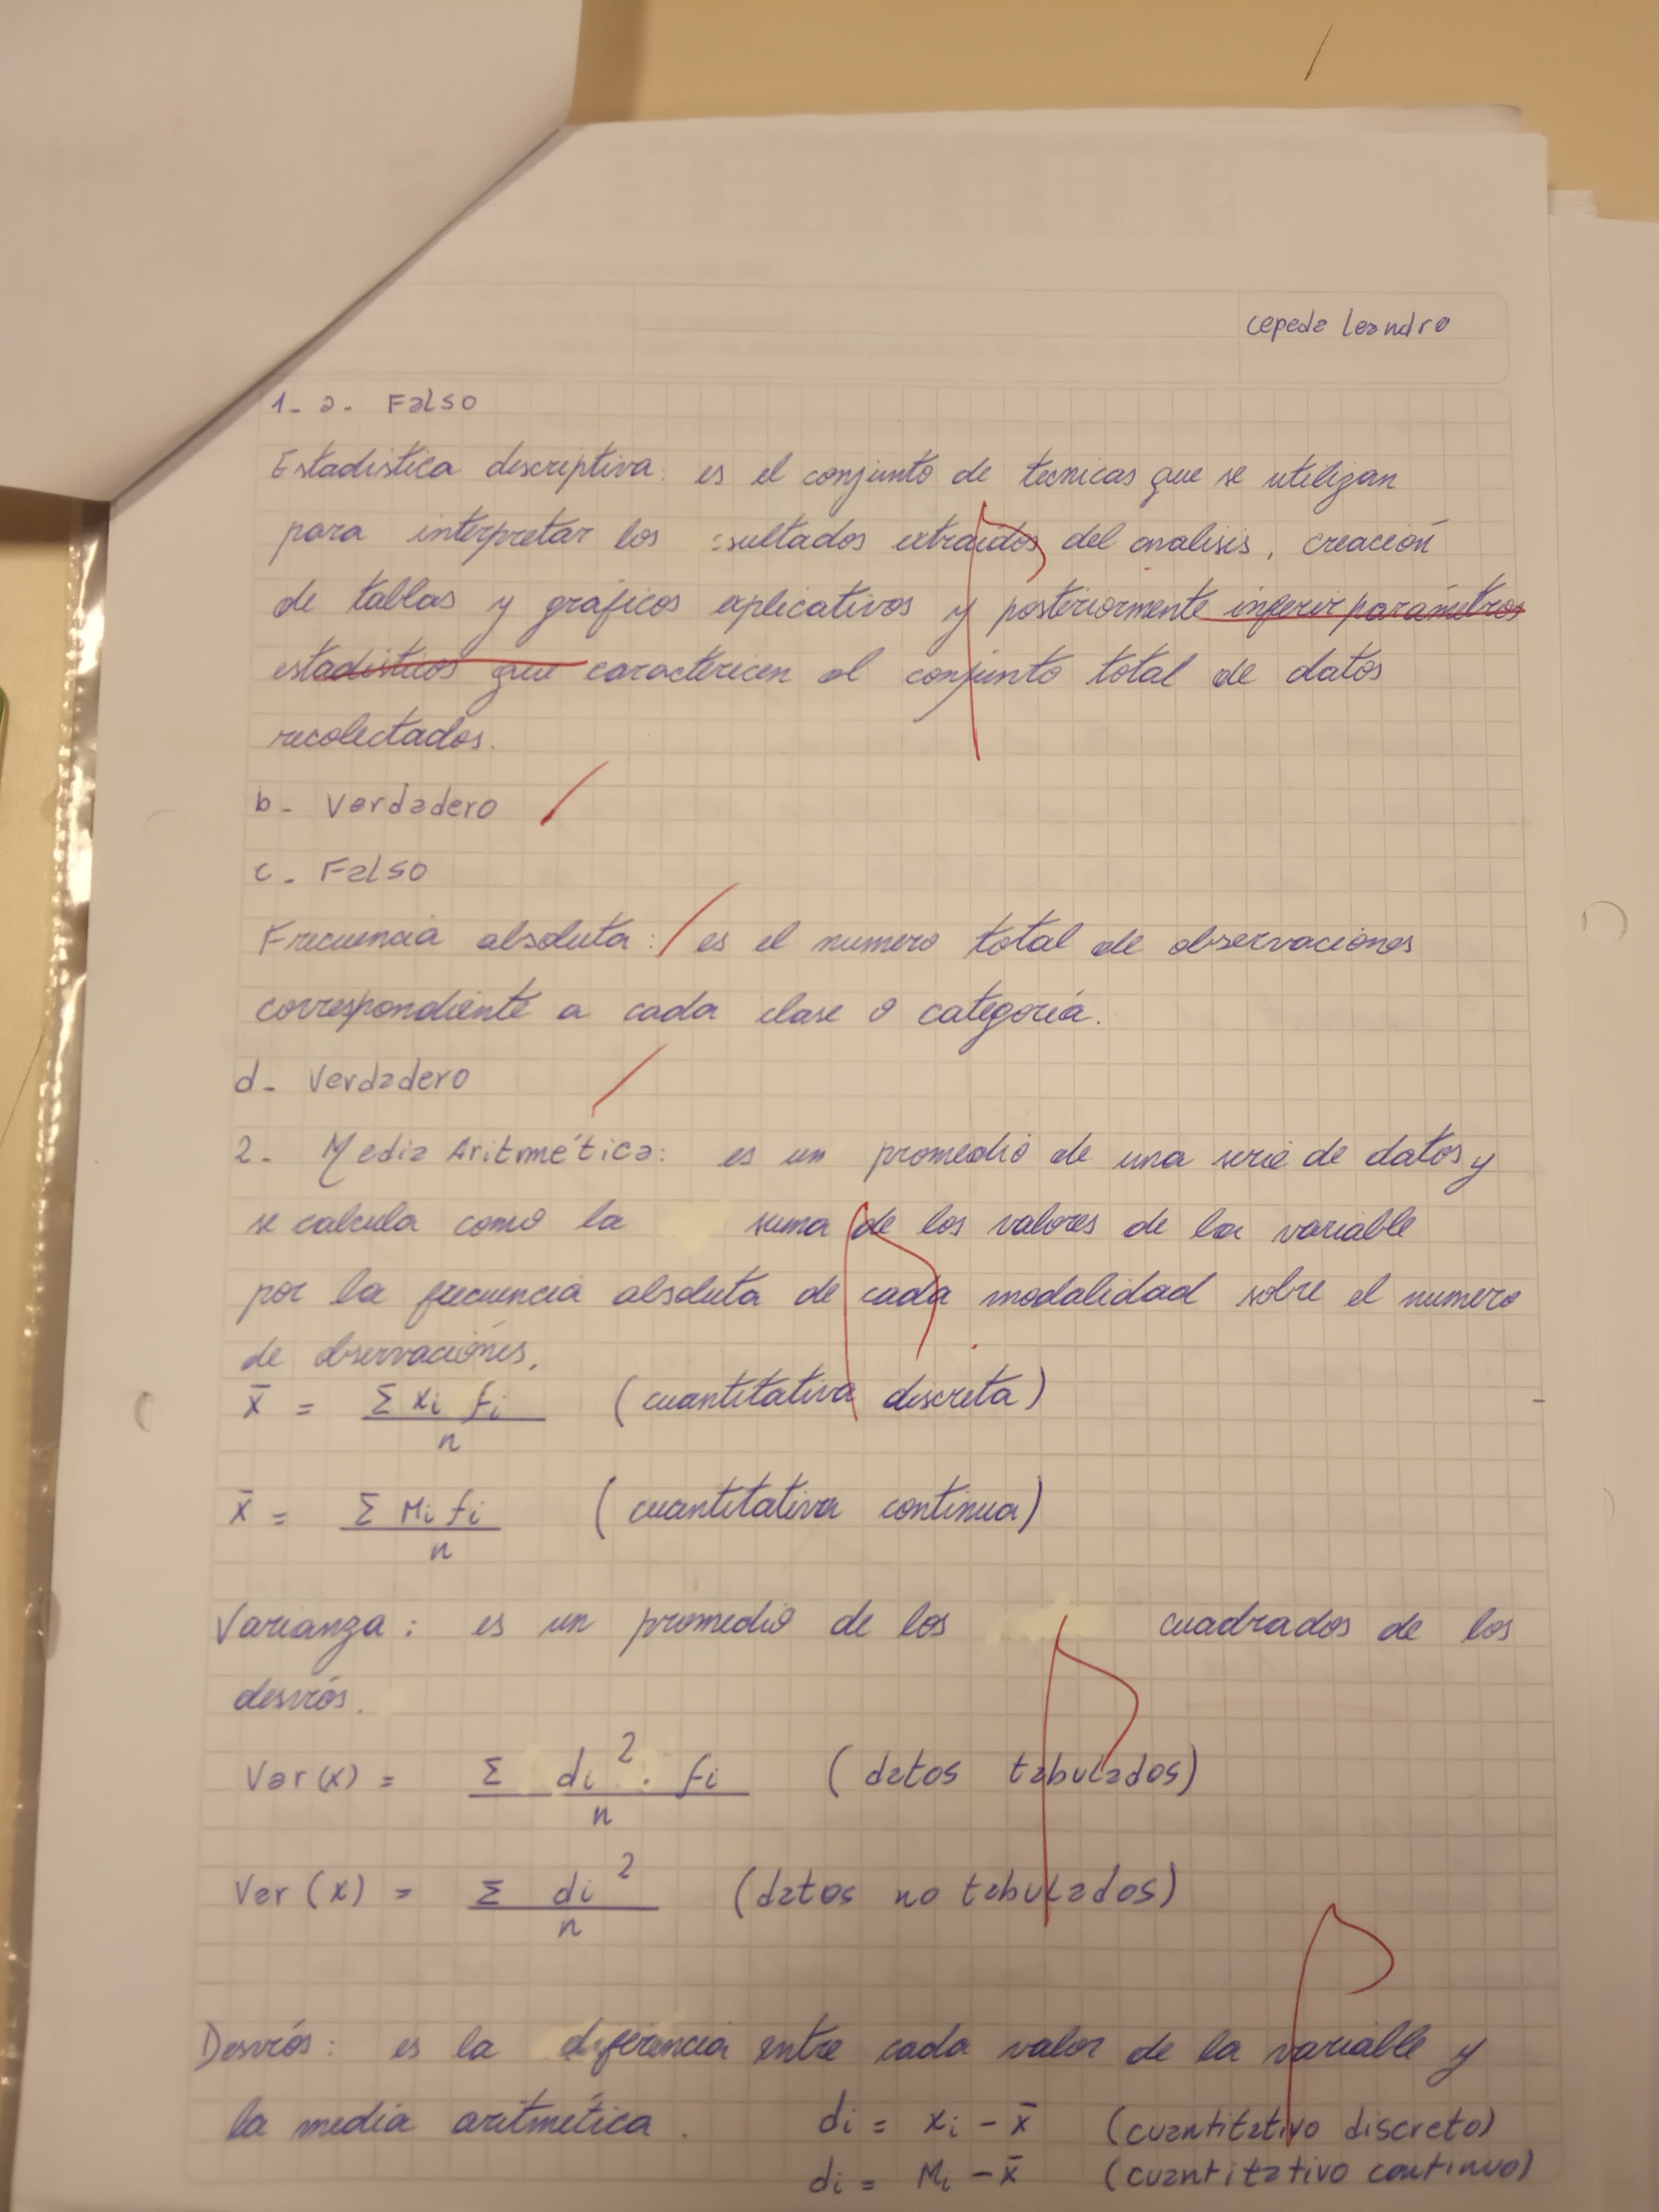 Cepeda Leandro
1- a- Falso
Estadistica descriptiva: es el conjunto de tecnicas que se utilizan
para interpretar los sultados extraidos del analisis, creación
de tablas y gráficos explicativos y posteriormente inferir parámetros
estadisticos que caractericen al conjunto total de datos
recolectados.
b- Verdadero
c- Falso
Frecuencia absoluta: es el numero total de observaciones
correspondiente a cada clase o categoría.
d- Verdadero
2- Media Aritmética: es un promedio de una serie de datos y
se calcula como la suma de los valores de la variable
por la frecuencia absoluta de cada modalidad sobre el numero
de observaciones.
x̄ = Σ xi fi / n (cuantitativa discreta)
x̄ = Σ Mi fi / n (cuantitativa continua)
Varianza: es un promedio de los cuadrados de los
desvios.
Var(x) = Σ di² . fi / n (datos tabulados)
Var(x) = Σ di² / n (datos no tabulados)
Desvios: es la diferencia entre cada valor de la variable y
la media aritmética. di = xi - x̄ (cuantitativo discreto)
di = Mi - x̄ (cuantitativo continuo)